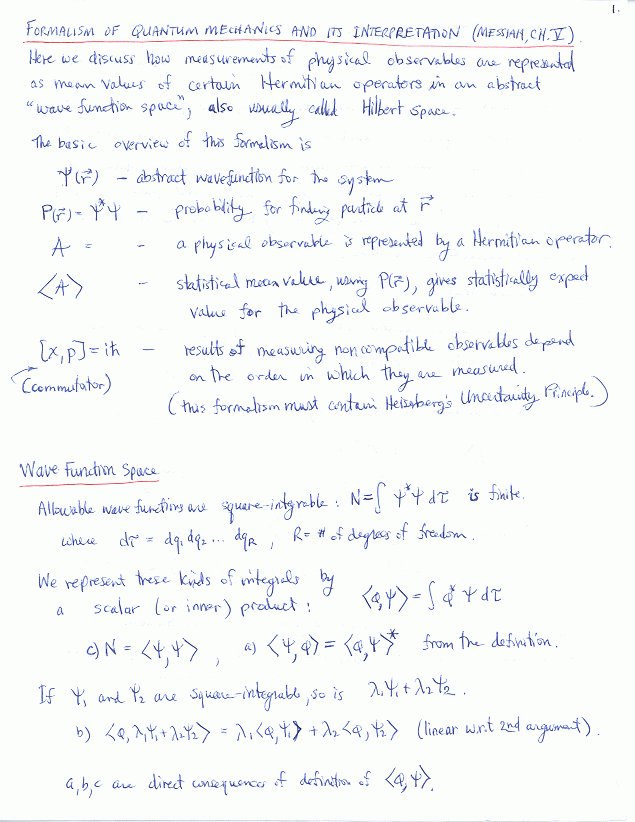 1.
FORMALISM OF QUANTUM MECHANICS AND ITS INTERPRETATION (MESSIAH, CH. V).
Here we discuss how measurements of physical observables are represented
as mean values of certain Hermitian operators in an abstract
"wave function space", also usually called Hilbert Space.
The basic overview of this formalism is
Ψ(r⃗) – abstract wavefunction for the system
P(r⃗) = Ψ*Ψ – probability for finding particle at r⃗
A = – a physical observable is represented by a Hermitian operator.
<A> – statistical mean value, using P(r⃗), gives statistically expect
value for the physical observable.
[x,p]=iħ – results of measuring noncompatible observables depend
(commutator) on the order in which they are measured.
(this formalism must contain Heisenberg's Uncertainty Principle.)
Wave Function Space
Allowable wave functions are square-integrable : N=∫ Ψ*Ψ dτ is finite.
where dτ = dq₁ dq₂ ... dq_R , R= # of degrees of freedom.
We represent these kinds of integrals by
a scalar (or inner) product : <φ,Ψ> = ∫ φ* Ψ dτ
c) N = <Ψ,Ψ> , a) <Ψ,φ> = <φ,Ψ>* from the definition.
If Ψ₁ and Ψ₂ are square-integrable, so is λ₁Ψ₁+λ₂Ψ₂.
b) <φ,λ₁Ψ₁+λ₂Ψ₂> = λ₁<φ,Ψ₁> + λ₂<φ,Ψ₂> (linear w.r.t 2nd argument).
a,b,c are direct consequences of definition of <φ,Ψ>.